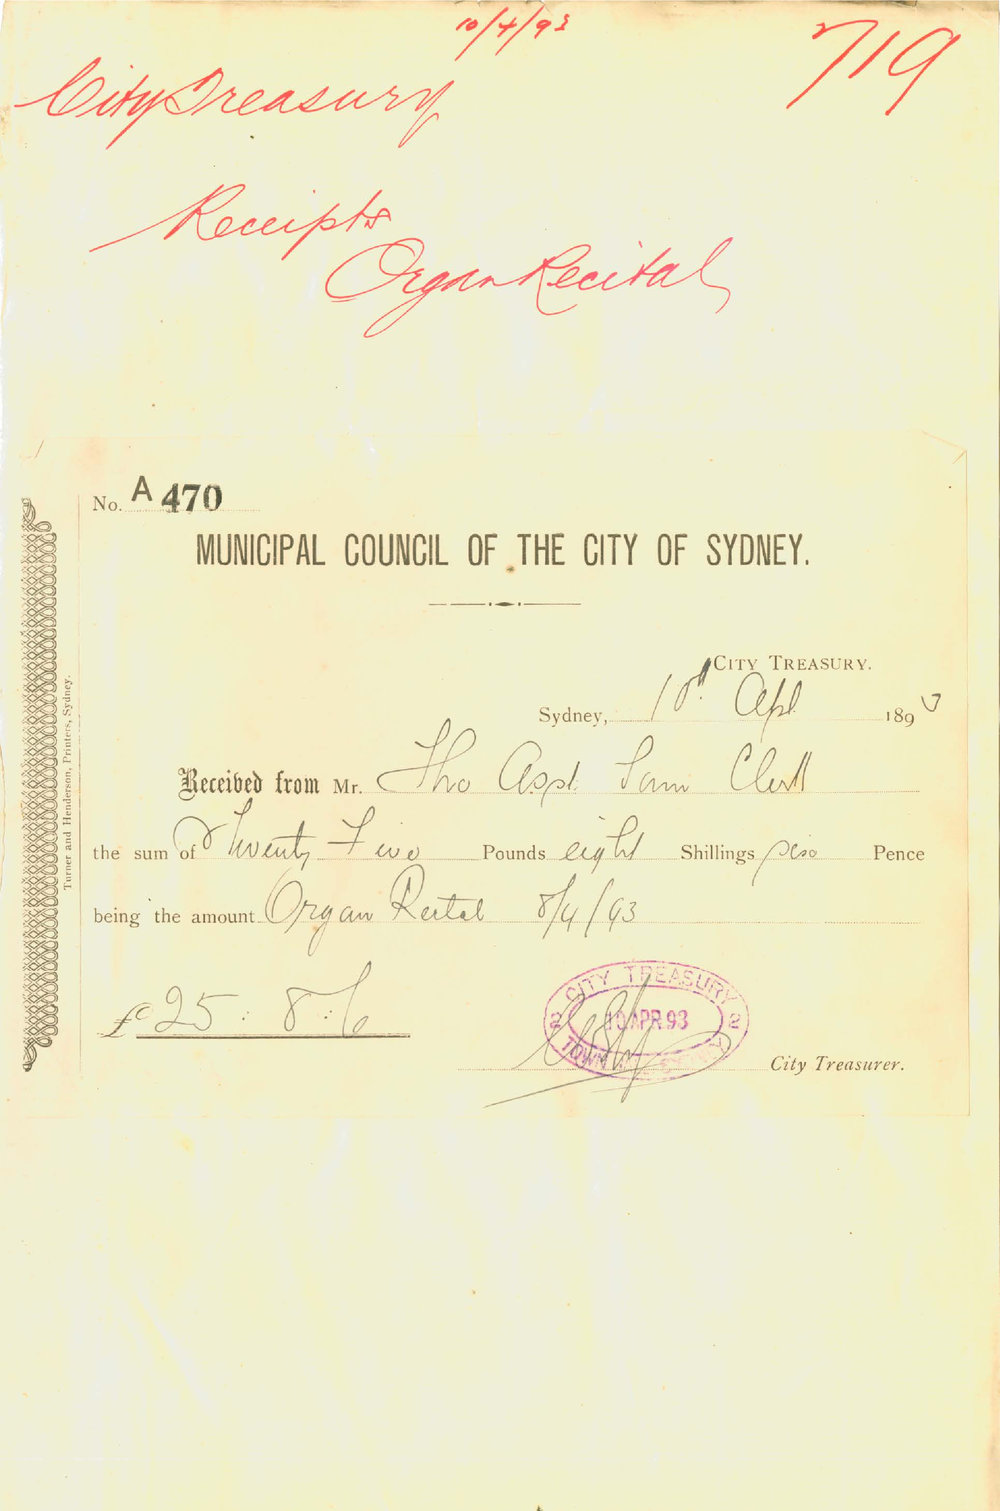 10/4/93
719
City Treasury
Receipts
Organ Recital
No. A 470
MUNICIPAL COUNCIL OF THE CITY OF SYDNEY.
CITY TREASURY.
Sydney, 10th Apl 1893
Received from Mr. The Asst. Town Clerk
the sum of Twenty Five Pounds eight Shillings Pence
being the amount Organ Recital 8/4/93
£25:8:6
CITY TREASURY
2 10 APR.93 2
TOWN SYDNEY
City Treasurer.
Turner and Henderson, Printers, Sydney.